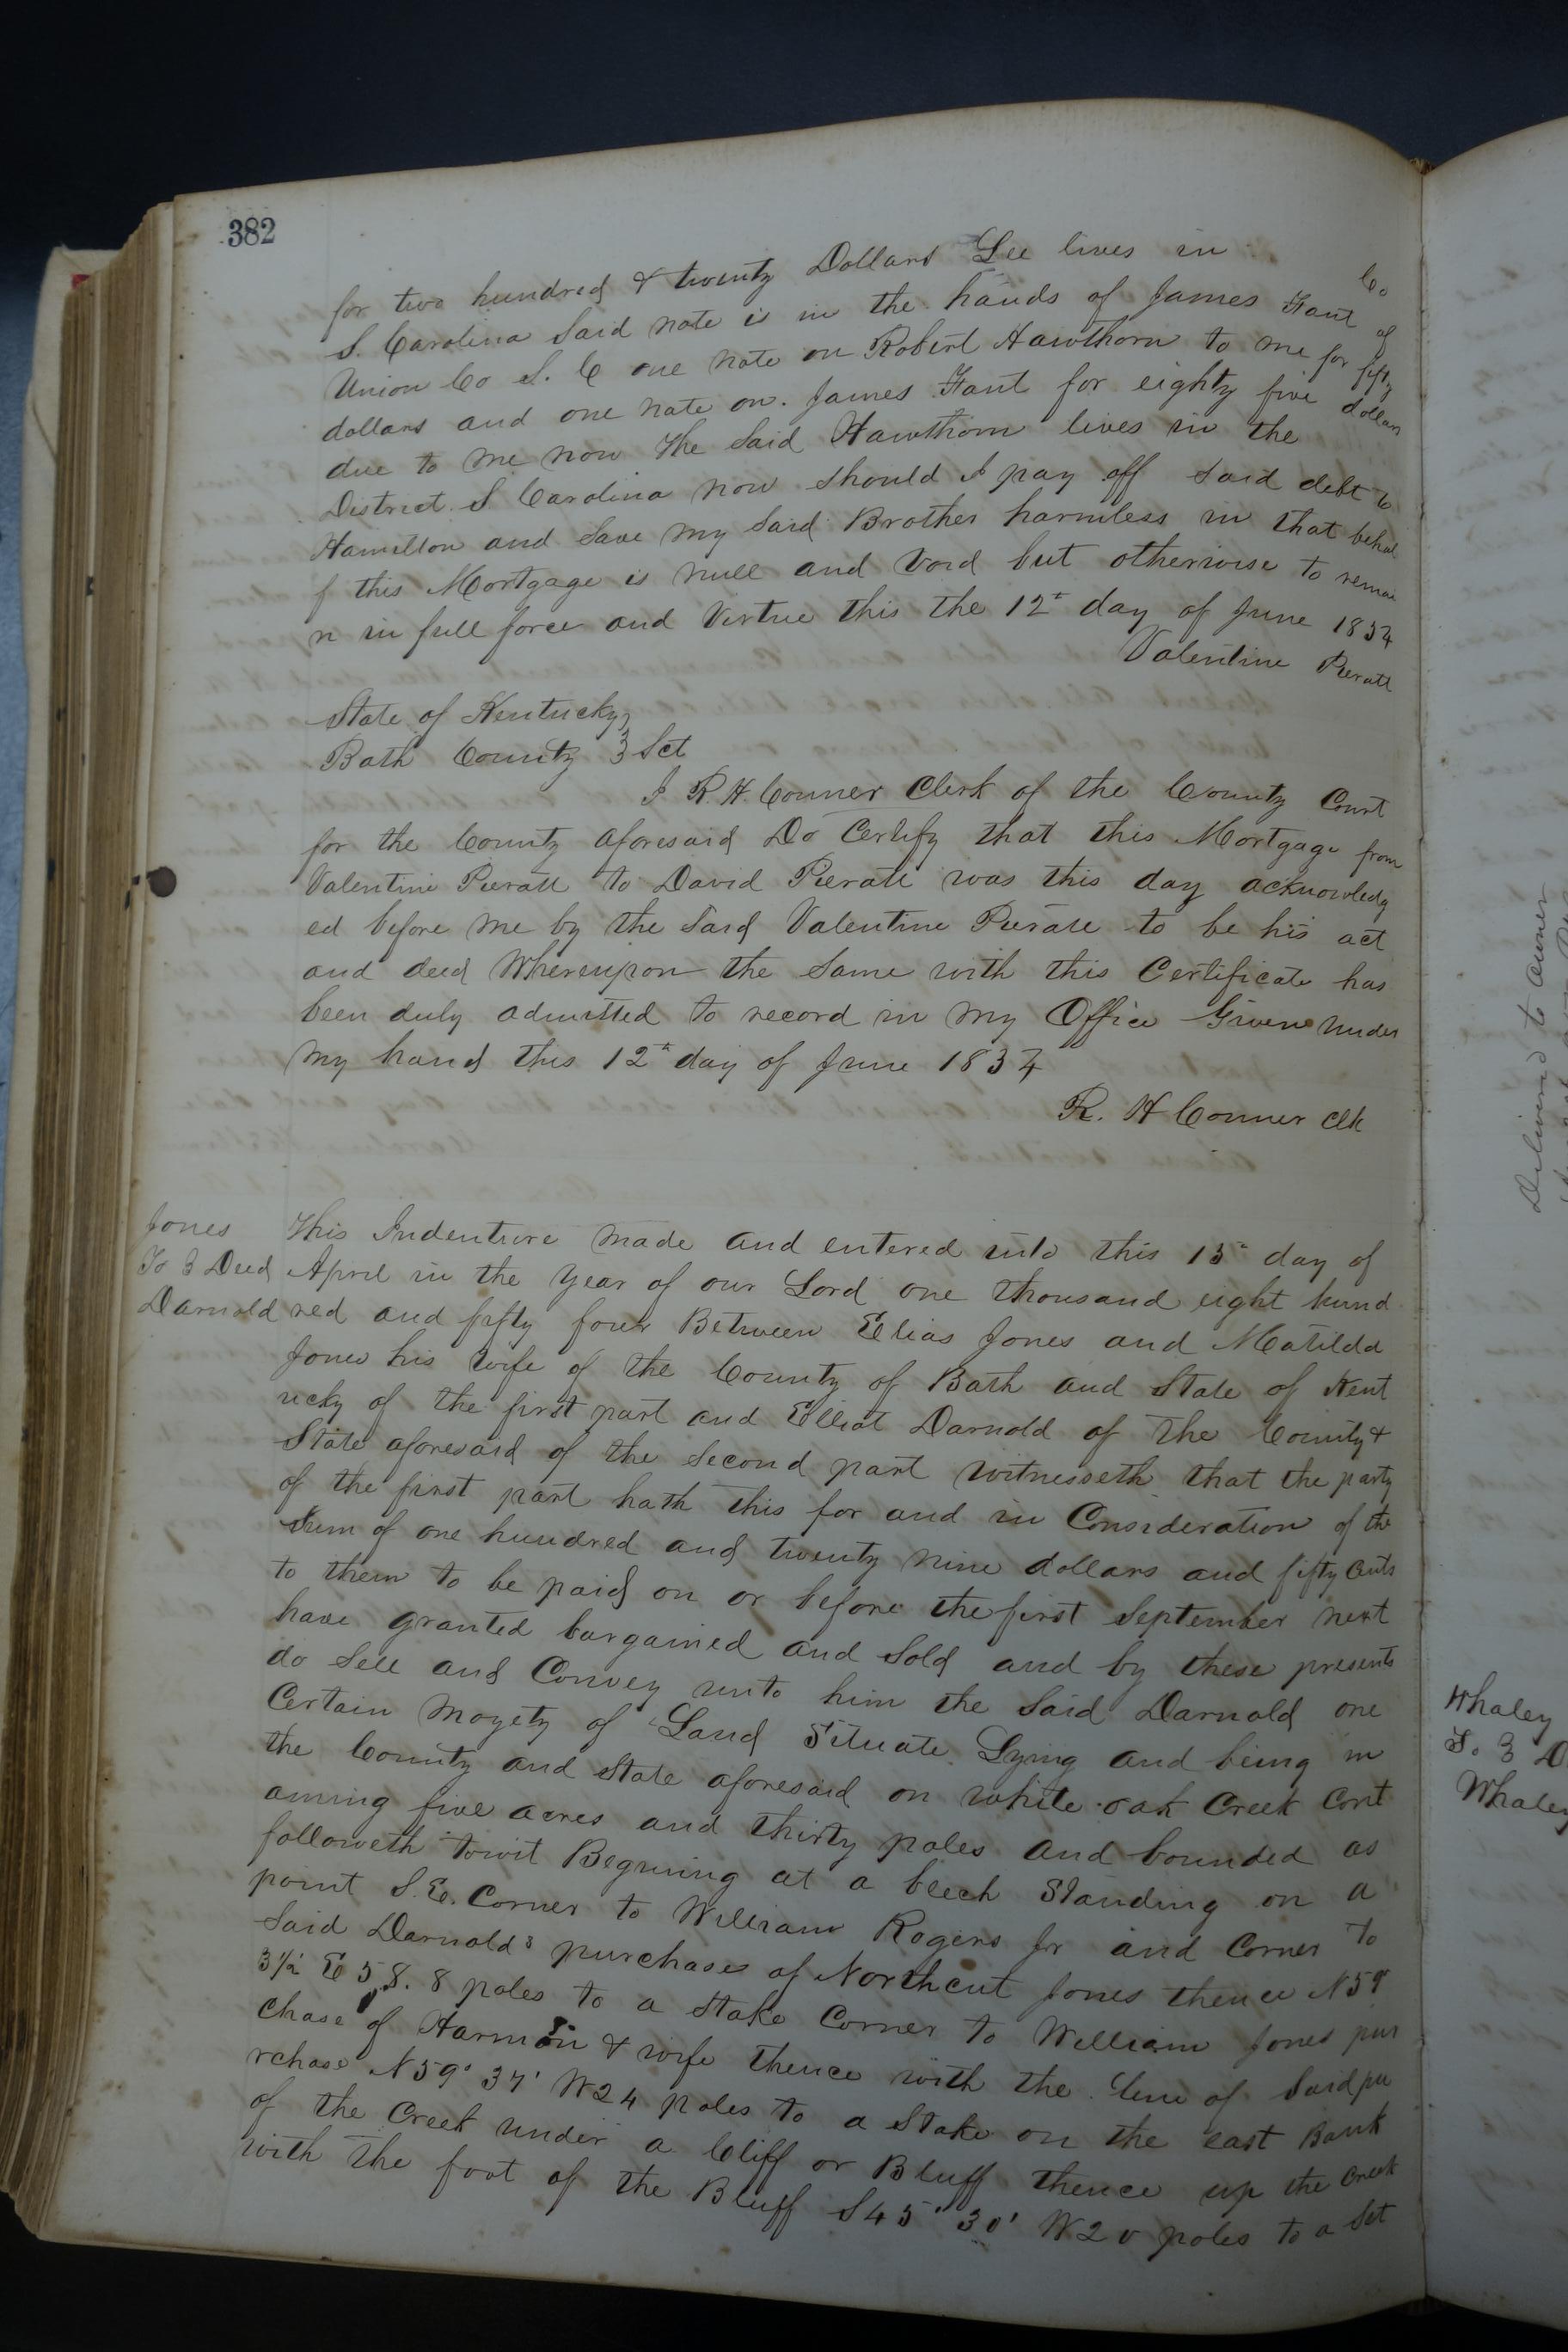 382
for two hundred & twenty Dollars Lee lives in Co
S. Carolina Said note is in the hands of James Fant of
Union Co S. C one note on Robert Hawthorn to me for fifty
dollars and one note on. James Fant for eighty five dollars
due to me now The Said Hawthorn lives in the
District S Carolina now should I pay off said debt to
Hamilton and Save my Said Brother harmless in that behal
f this Mortgage is null and Void but otherwise to remai
n in full force and Virtue this the 12th day of June 1854
Valentine Pieratt
State of Kentucky }
Bath County } Sct
I R. H. Conner Clerk of the County Court
for the County aforesaid Do Certify that this Mortgage from
Valentine Pieratt to David Pieratt was this day acknowledg
ed before me by the Said Valentine Pieratt to be his act
and deed Whereupon the Same with this Certificate has
been duly admitted to record in my Office Given under
my hand this 12th day of June 1854
R. H Conner Clk
Jones
To } Deed
Darnold
This Indenture made and entered into this 15th day of
April in the Year of our Lord one thousand eight hund
red and fifty four Between Elias Jones and Matilda
Jones his wife of the County of Bath and State of Kent
ucky of the first part and Elliot Darnold of the County &
State aforesaid of the Second part witnesseth that the party
of the first part hath this for and in Consideration of the
Sum of one hundred and twenty nine dollars and fifty Cents
to them to be paid on or before the first September next
have granted bargained and Sold and by these presents
do Sell and Convey unto him the Said Darnold one
Certain Moyety of Land Situate Lying and being in
the County and State aforesaid on white oak Creek Cont
aining five acres and thirty poles and bounded as
followeth towit Begining at a beech Standing on a
point S. E. Corner to William Rogers Jr and Corner to
Said Darnolds purchases of Northcut Jones thence N 59°
3½' E 58. 8 poles to a Stake Corner to William Jones pur
chase of Harmon & wife thence with the line of Said pu
rchase N 59° 37' W 24 poles to a Stake on the east Bank
of the Creek under a Cliff or Bluff thence up the Creek
with the foot of the Bluff S 45° 30' W 20 poles to a Set
Delivered to owner
Whaley
To } D
Whaley